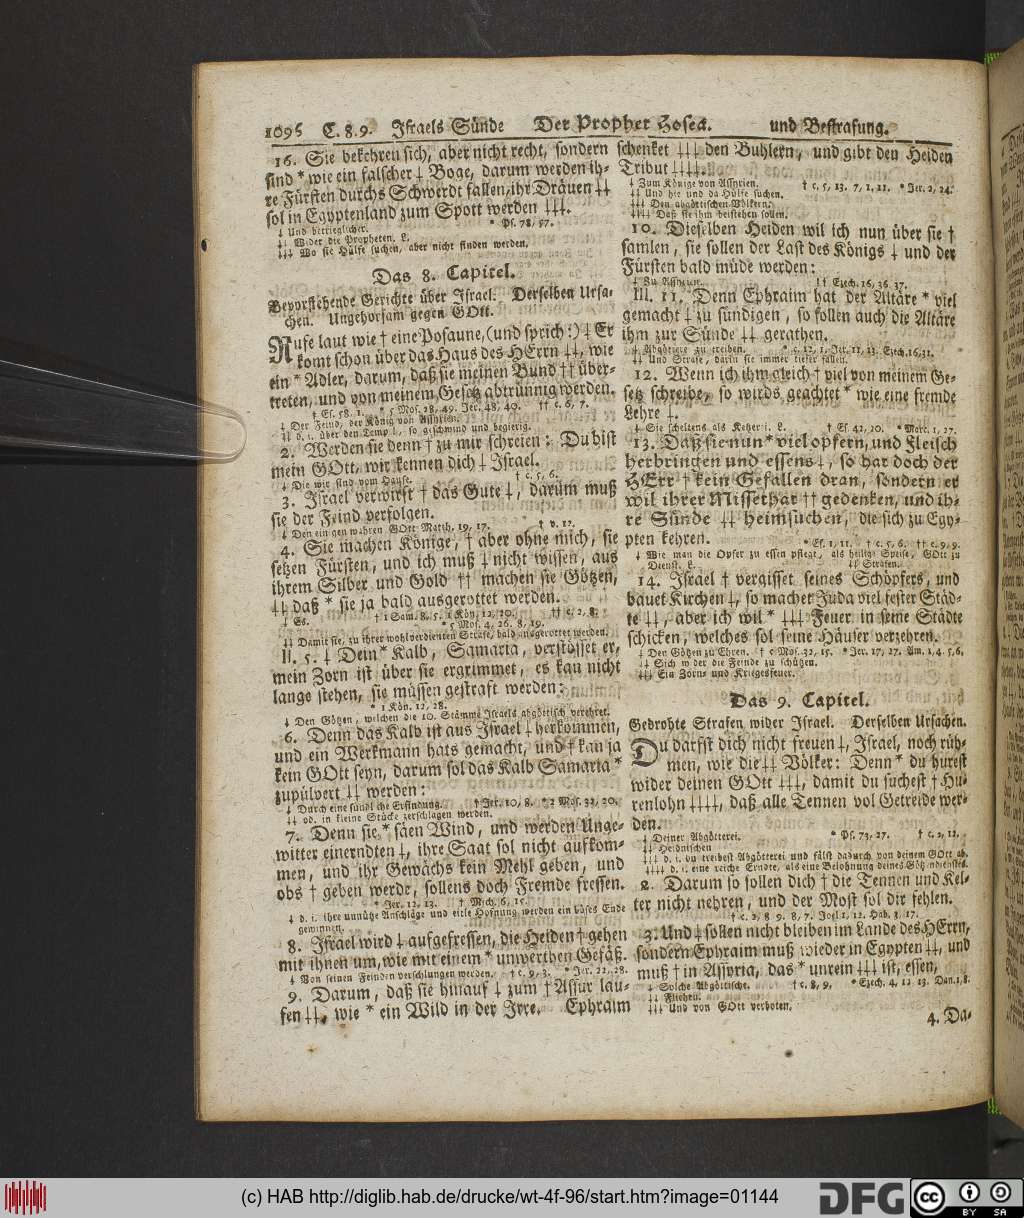 1095 C. 8. 9. Israels Sünde Der Prophet Hosea. und Bestrafung.
16. Sie bekehren sich, aber nicht recht, sondern
sind * wie ein falscher ⸸ Boge, darum werden ih-
re Fürsten durchs Schwerdt fallen, ihr Dräuen ⸸⸸
sol in Egyptenland zum Spott werden ⸸⸸⸸.
* Ps. 78, 57.
⸸ Und betrieglicher.
⸸⸸ Wider die Propheten. L.
⸸⸸⸸ Wo sie Hülfe suchen, aber nicht finden werden.
Das 8. Capitel.
Bevorstehende Gerichte über Israel. Derselben Ursa-
chen. Ungehorsam gegen GOtt.
Rufe laut wie † eine Posaune, (und sprich:) ⸸ Er
komt schon über das Haus des HErrn ⸸⸸, wie
ein * Adler, darum, daß sie meinen Bund †† über-
treten, und von meinem Gesetz abtrünnig werden.
† Es. 58, 1. * 5 Mos. 28, 49. Jer. 48, 40. †† c. 6, 7.
⸸ Der Feind, der König von Assyrien.
⸸⸸ d. i. über den Tempel, so geschwind und begierig.
2. Werden sie denn † zu mir schreien: Du bist
mein GOtt, wir kennen dich ⸸ Israel.
† c. 5, 6.
⸸ Die wir sind vom Hause.
3. Israel verwirft † das Gute ⸸, darum muß
sie der Feind verfolgen.
† v. 12.
⸸ Den einigen wahren GOtt Matth. 19, 17.
4. Sie machen Könige, † aber ohne mich, sie
setzen Fürsten, und ich muß ⸸ nicht wissen, aus
ihrem Silber und Gold †† machen sie Götzen,
⸸⸸ daß * sie ja bald ausgerottet werden.
† 1 Sam. 8, 5. 1 Kön. 12, 20. †† c. 2, 8.
⸸ Es. * 5 Mos. 4, 26. 8, 19.
⸸⸸ Damit sie, zu ihrer wohlverdienten Strafe, bald ausgerottet werden.
II. 5. ⸸ Dein * Kalb, Samaria, verstösset er,
mein Zorn ist über sie ergrimmet, es kan nicht
lange stehen, sie müssen gestraft werden:
* 1 Kön. 12, 28.
⸸ Den Götzen, welchen die 10. Stämme Israels abgöttisch verehret.
6. Denn das Kalb ist aus Israel ⸸ herkommen,
und ein Werkmann hats gemacht, und † kan ja
kein GOtt seyn, darum sol das Kalb Samaria *
zupülvert ⸸⸸ werden:
† Jer. 10, 8. * 2 Mos. 32, 20.
⸸ Durch eine sündliche Erfindung.
⸸⸸ od. in kleine Stücke zerschlagen werden.
7. Denn sie * säen Wind, und werden Unge-
witter einerndten ⸸, ihre Saat sol nicht aufkom-
men, und ihr Gewächs kein Mehl geben, und
obs † geben werde, sollens doch Fremde fressen.
* Jer. 12, 13. † Mich. 6, 15.
⸸ d. i. ihre unnütze Anschläge und eitle Hofnung werden ein böses Ende
gewinnen.
8. Israel wird ⸸ aufgefressen, die Heiden † gehen
mit ihnen um, wie mit einem * unwerthen Gefäß.
⸸ Von seinen Feinden verschlungen werden. † c. 9, 3. * Jer. 22, 28.
9. Darum, daß sie hinauf ⸸ zum † Assur lau-
fen ⸸⸸, wie * ein Wild in der Irre. Ephraim
schenket ⸸⸸⸸ den Buhlern, und gibt den Heiden
Tribut ⸸⸸⸸⸸.
† c. 5, 13. 7, 1, 11. * Jer. 2, 24.
⸸ Zum Könige von Assyrien.
⸸⸸ Und hie und da Hülfe suchen.
⸸⸸⸸ Den abgöttischen Völkern.
⸸⸸⸸⸸ Daß sie ihm beistehen sollen.
10. Dieselben Heiden wil ich nun über sie †
samlen, sie sollen der Last des Königs ⸸ und der
Fürsten bald müde werden:
⸸ Zu Assyrien. † Ezech. 16, 36. 37.
III. 11. Denn Ephraim hat der Altäre * viel
gemacht ⸸ zu sündigen, so sollen auch die Altäre
ihm zur Sünde ⸸⸸ gerathen.
⸸ Abgötterey zu treiben. * c. 12, 1. Jer. 11, 13. Ezech. 16, 31.
⸸⸸ Und Strafe, darin sie immer tiefer fallen.
12. Wenn ich ihm gleich † viel von meinem Ge-
setz schreibe, so wirds geachtet * wie eine fremde
Lehre ⸸.
⸸ Sie scheltens als Ketzerei. L. † Es. 42, 20. * Marc. 1, 27.
13. Daß sie nun * viel opfern, und Fleisch
herbringen und essens ⸸, so hat doch der
HErr † kein Gefallen dran, sondern er
wil ihrer Missethat †† gedenken, und ih-
re Sünde ⸸⸸ heimsuchen, die sich zu Egy-
pten kehren.
* Es. 1, 11. † c. 5, 6. †† c. 9, 9.
⸸ Wie man die Opfer zu essen pfleget, als heilige Speise, GOtt zu
Dienst. L. ⸸⸸ Strafen.
14. Israel † vergisset seines Schöpfers, und
bauet Kirchen ⸸, so machet Juda viel fester Städ-
te ⸸⸸, aber ich wil * ⸸⸸⸸ Feuer in seine Städte
schicken, welches sol seine Häuser verzehren.
⸸ Den Götzen zu Ehren. † 5 Mos. 32, 15. * Jer. 17, 27. Am. 1, 4. 5, 6.
⸸⸸ Sich wider die Feinde zu schützen.
⸸⸸⸸ Ein Zorn- und Kriegesfeuer.
Das 9. Capitel.
Gedrohte Strafen wider Israel. Derselben Ursachen.
Du darfst dich nicht freuen ⸸, Israel, noch rüh-
men, wie die ⸸⸸ Völker: Denn * du hurest
wider deinen GOtt ⸸⸸⸸, damit du suchest † Hu-
renlohn ⸸⸸⸸⸸, daß alle Tennen vol Getreide wer-
den.
* Ps. 73, 27. † c. 2, 12.
⸸ Deiner Abgötterei.
⸸⸸ Heidnischen
⸸⸸⸸ d. i. du treibest Abgötterei und fällst dadurch von deinem GOtt ab.
⸸⸸⸸⸸ d. i. eine reiche Erndte, als eine Belohnung deines Götzendienstes.
2. Darum so sollen dich † die Tennen und Kel-
ter nicht nehren, und der Most sol dir fehlen.
† c. 2, 8. 9. 8, 7. Joel 1, 12. Hab. 3, 17.
3. Und ⸸ sollen nicht bleiben im Lande des HErrn,
sondern Ephraim muß wieder in Egypten ⸸⸸, und
muß † in Assyria, das * unrein ⸸⸸⸸ ist, essen,
⸸ Solche Abgöttische. † c. 8, 9. * Ezech. 4, 12. 13. Dan. 1, 8.
⸸⸸ Fliehen.
⸸⸸⸸ Und von GOtt verboten.
4. Da-
(c) HAB http://diglib.hab.de/drucke/wt-4f-96/start.htm?image=01144
DFG
cc BY SA